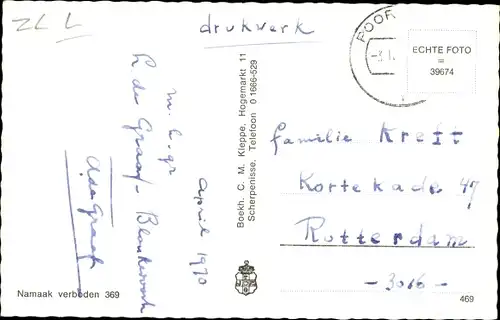 ZLL
drukwerk
POOR
ECHTE FOTO
=
39674
m. h. gr
de Graaf - Blankevoort
A de Graaf
april 1970
Boekh. C. M. Kleppe, Hogemarkt 11
Scherpenisse. Telefoon 0 1666-529
familie Kreft
Kortekade 47
Rotterdam
- 3016 -
Namaak verboden 369
469